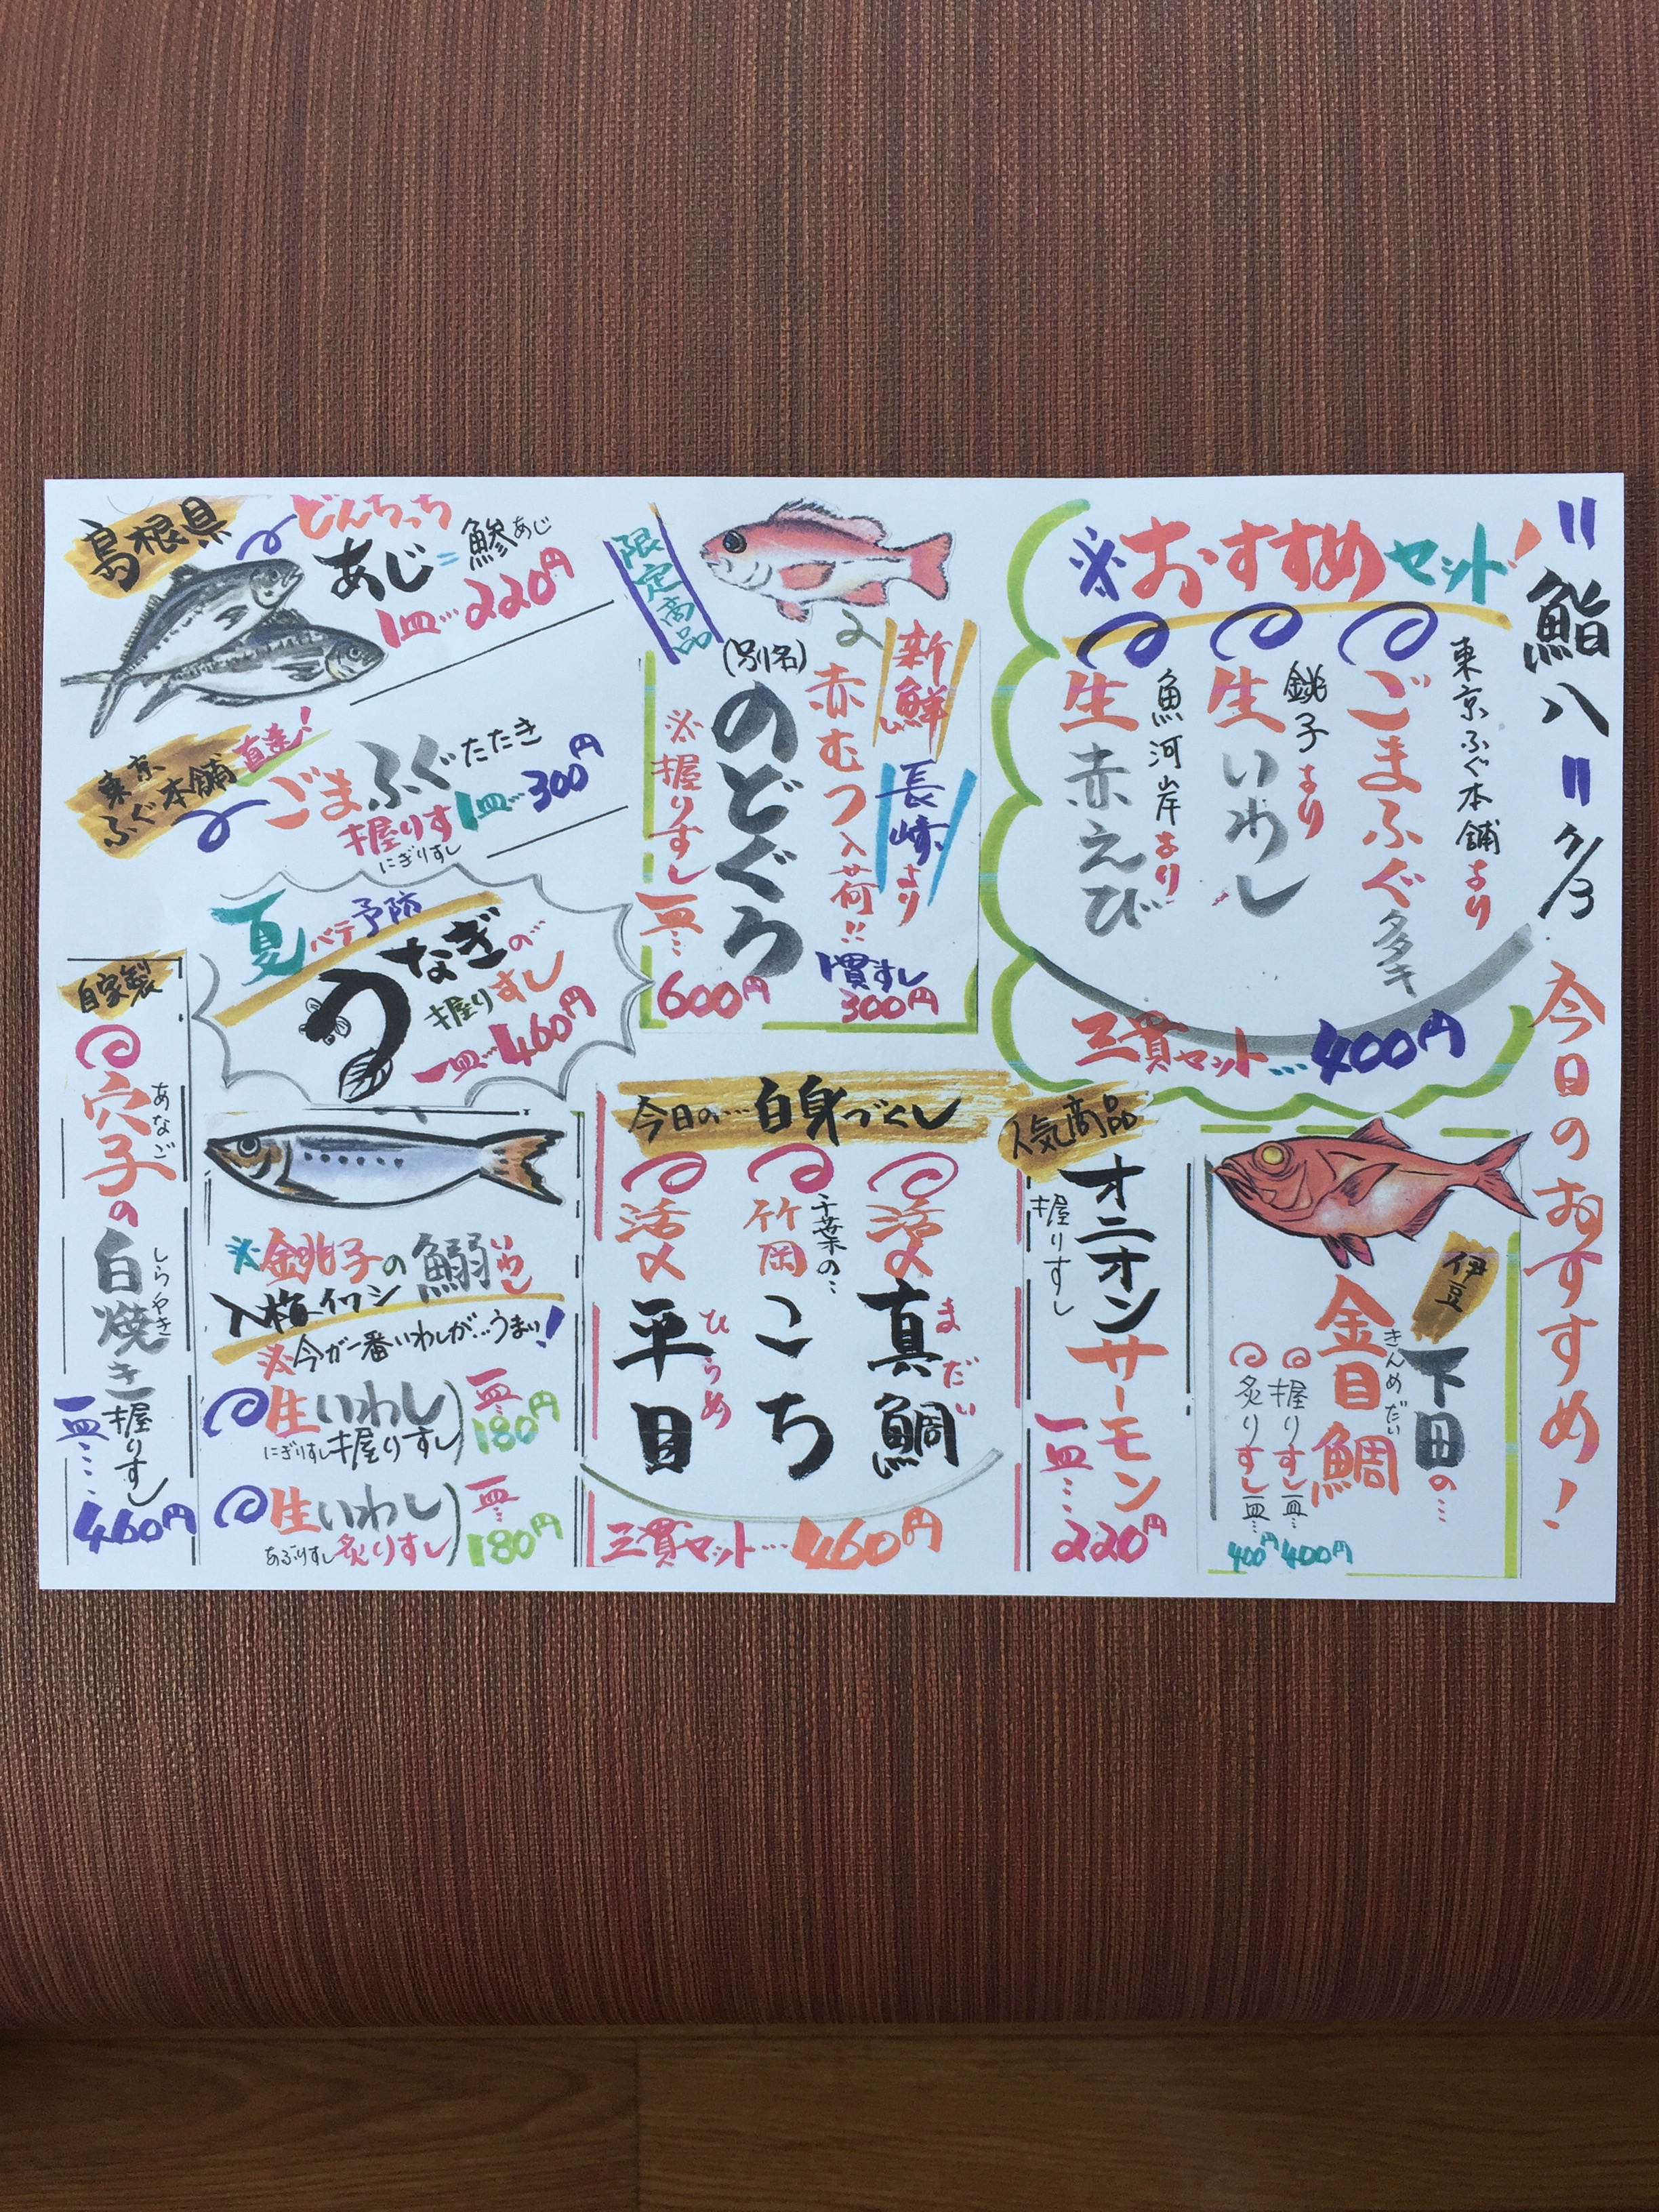 "鮨八" 7/3 今日のおすすめ!
※おすすめセット!
東京ふぐ本舗より
ごまふぐタタキ
銚子より
生いわし
魚河岸より
生赤えび
三貫セット…400円
限定商品
新鮮 長崎より
赤むつ入荷!!
(別名)
のどぐろ
※握りすし一皿…
600円
1貫すし
300円
島根県
どんちっち
あじ=鯵あじ
1皿…220円
東京
ふぐ本舗
直送!
ごまふぐたたき
握りす
にぎりすし
1皿…300円
夏バテ予防
うなぎの…
握りすし
一皿…460円
伊豆
下田の…
金目鯛
きんめだい
握りすし一皿…
400円
炙りすし一皿…
400円
人気商品
オニオンサーモン
握りすし
一皿…
220円
今日の…白身づくし
活〆真鯛
まだい
千葉の…
竹岡こち
活〆平目
ひらめ
三貫セット…460円
※銚子の鰯いわし
入梅イワシ
※今が一番いわしが…うまい!
生いわし
にぎりすし握りすし
一皿…
180円
生いわし
あぶりすし炙りすし
一皿…
180円
自家製
穴子の白焼き握りすし
あなご
しらやき
一皿…
460円